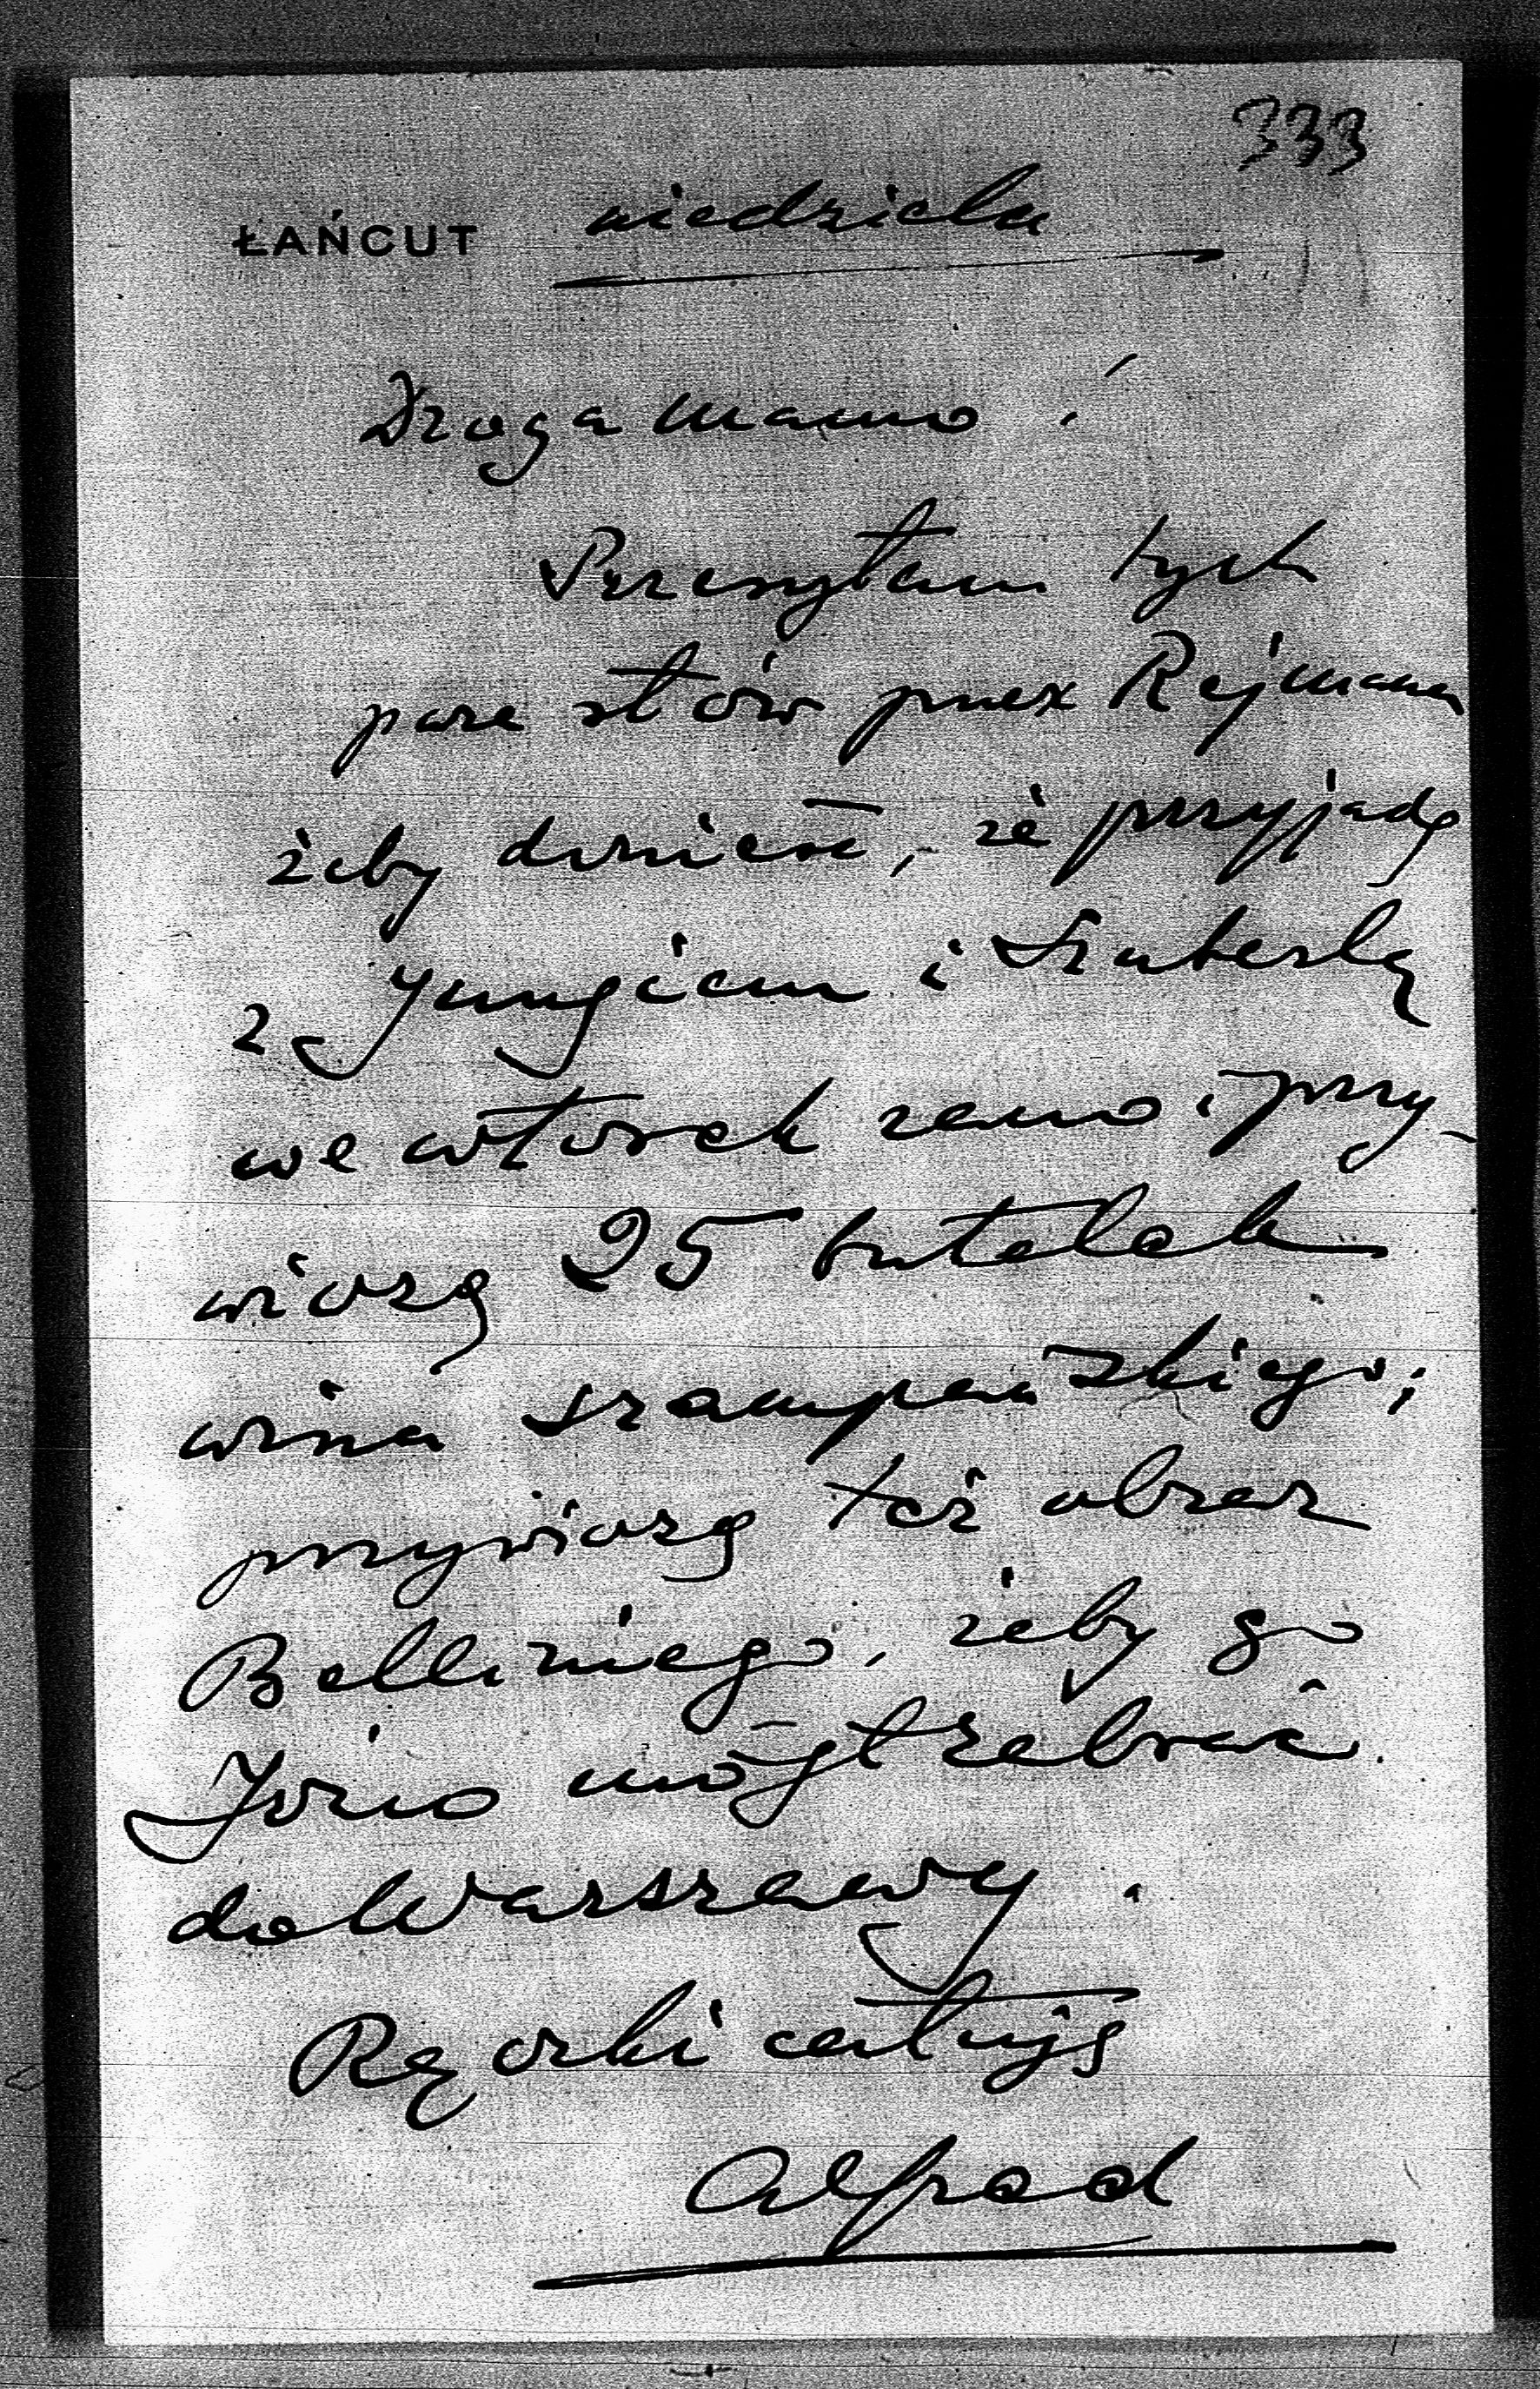 333
ŁAŃCUT niedziela
Droga Mamo!
Przesyłam tych
parę słów przez Rejmana
żeby donieść, że przyjadę
z Jungiem i
we wtorek rano i przy-
wiozę 25 butelek
wina szampańskiego;
przywiozę też obraz
Belliniego, żeby go
Józio mógł zabrać
do Warszawy.
Rączki całuję
Alfred